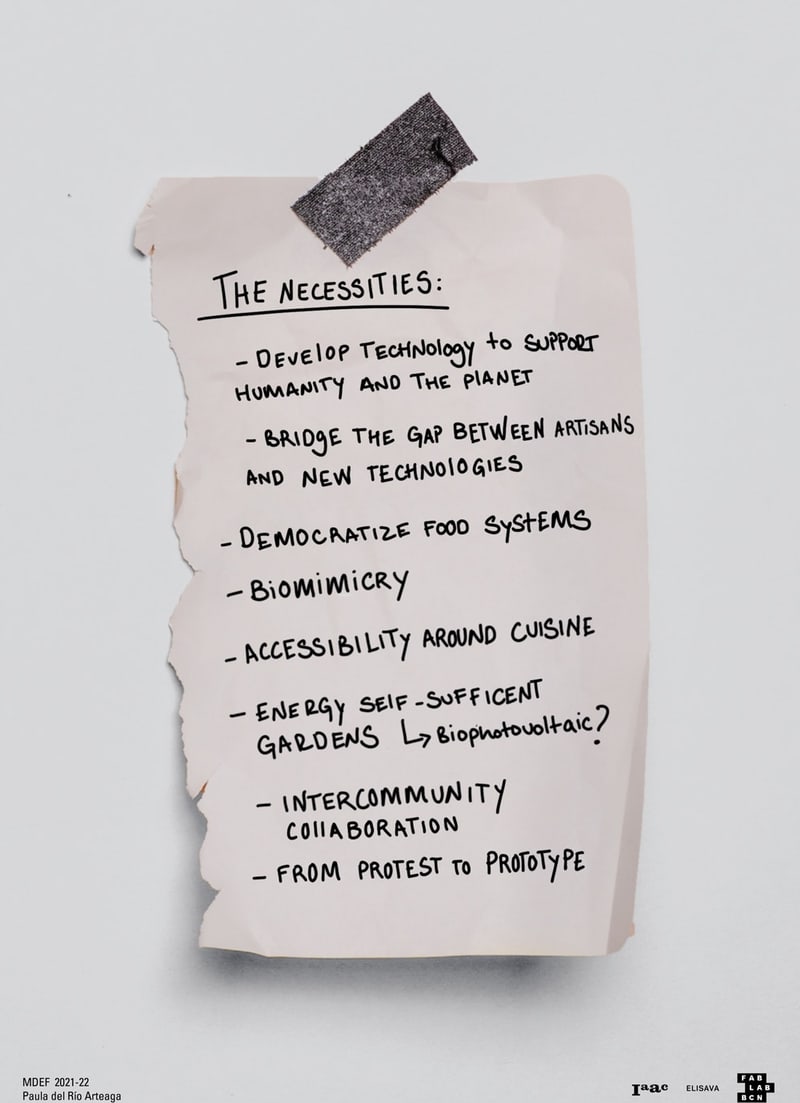 THE NECESSITIES:
- DEVELOP TECHNOLOGY to SUPPORT
HUMANITY AND THE PLANET
- BRIDGE THE GAP BETWEEN ARTISANS
AND NEW TECHNOLOGIES
- DEMOCRATIZE FOOD SYSTEMS
- BIOMIMICRY
- ACCESSIBILITY AROUND CUISINE
- ENERGY SELF-SUFFICENT
GARDENS ↳ Biophotovoltaic?
- INTERCOMMUNITY
COLLABORATION
- FROM PROTEST TO PROTOTYPE
MDEF 2021-22
Paula del Río Arteaga
Iaac ELISAVA FAB LAB BCN